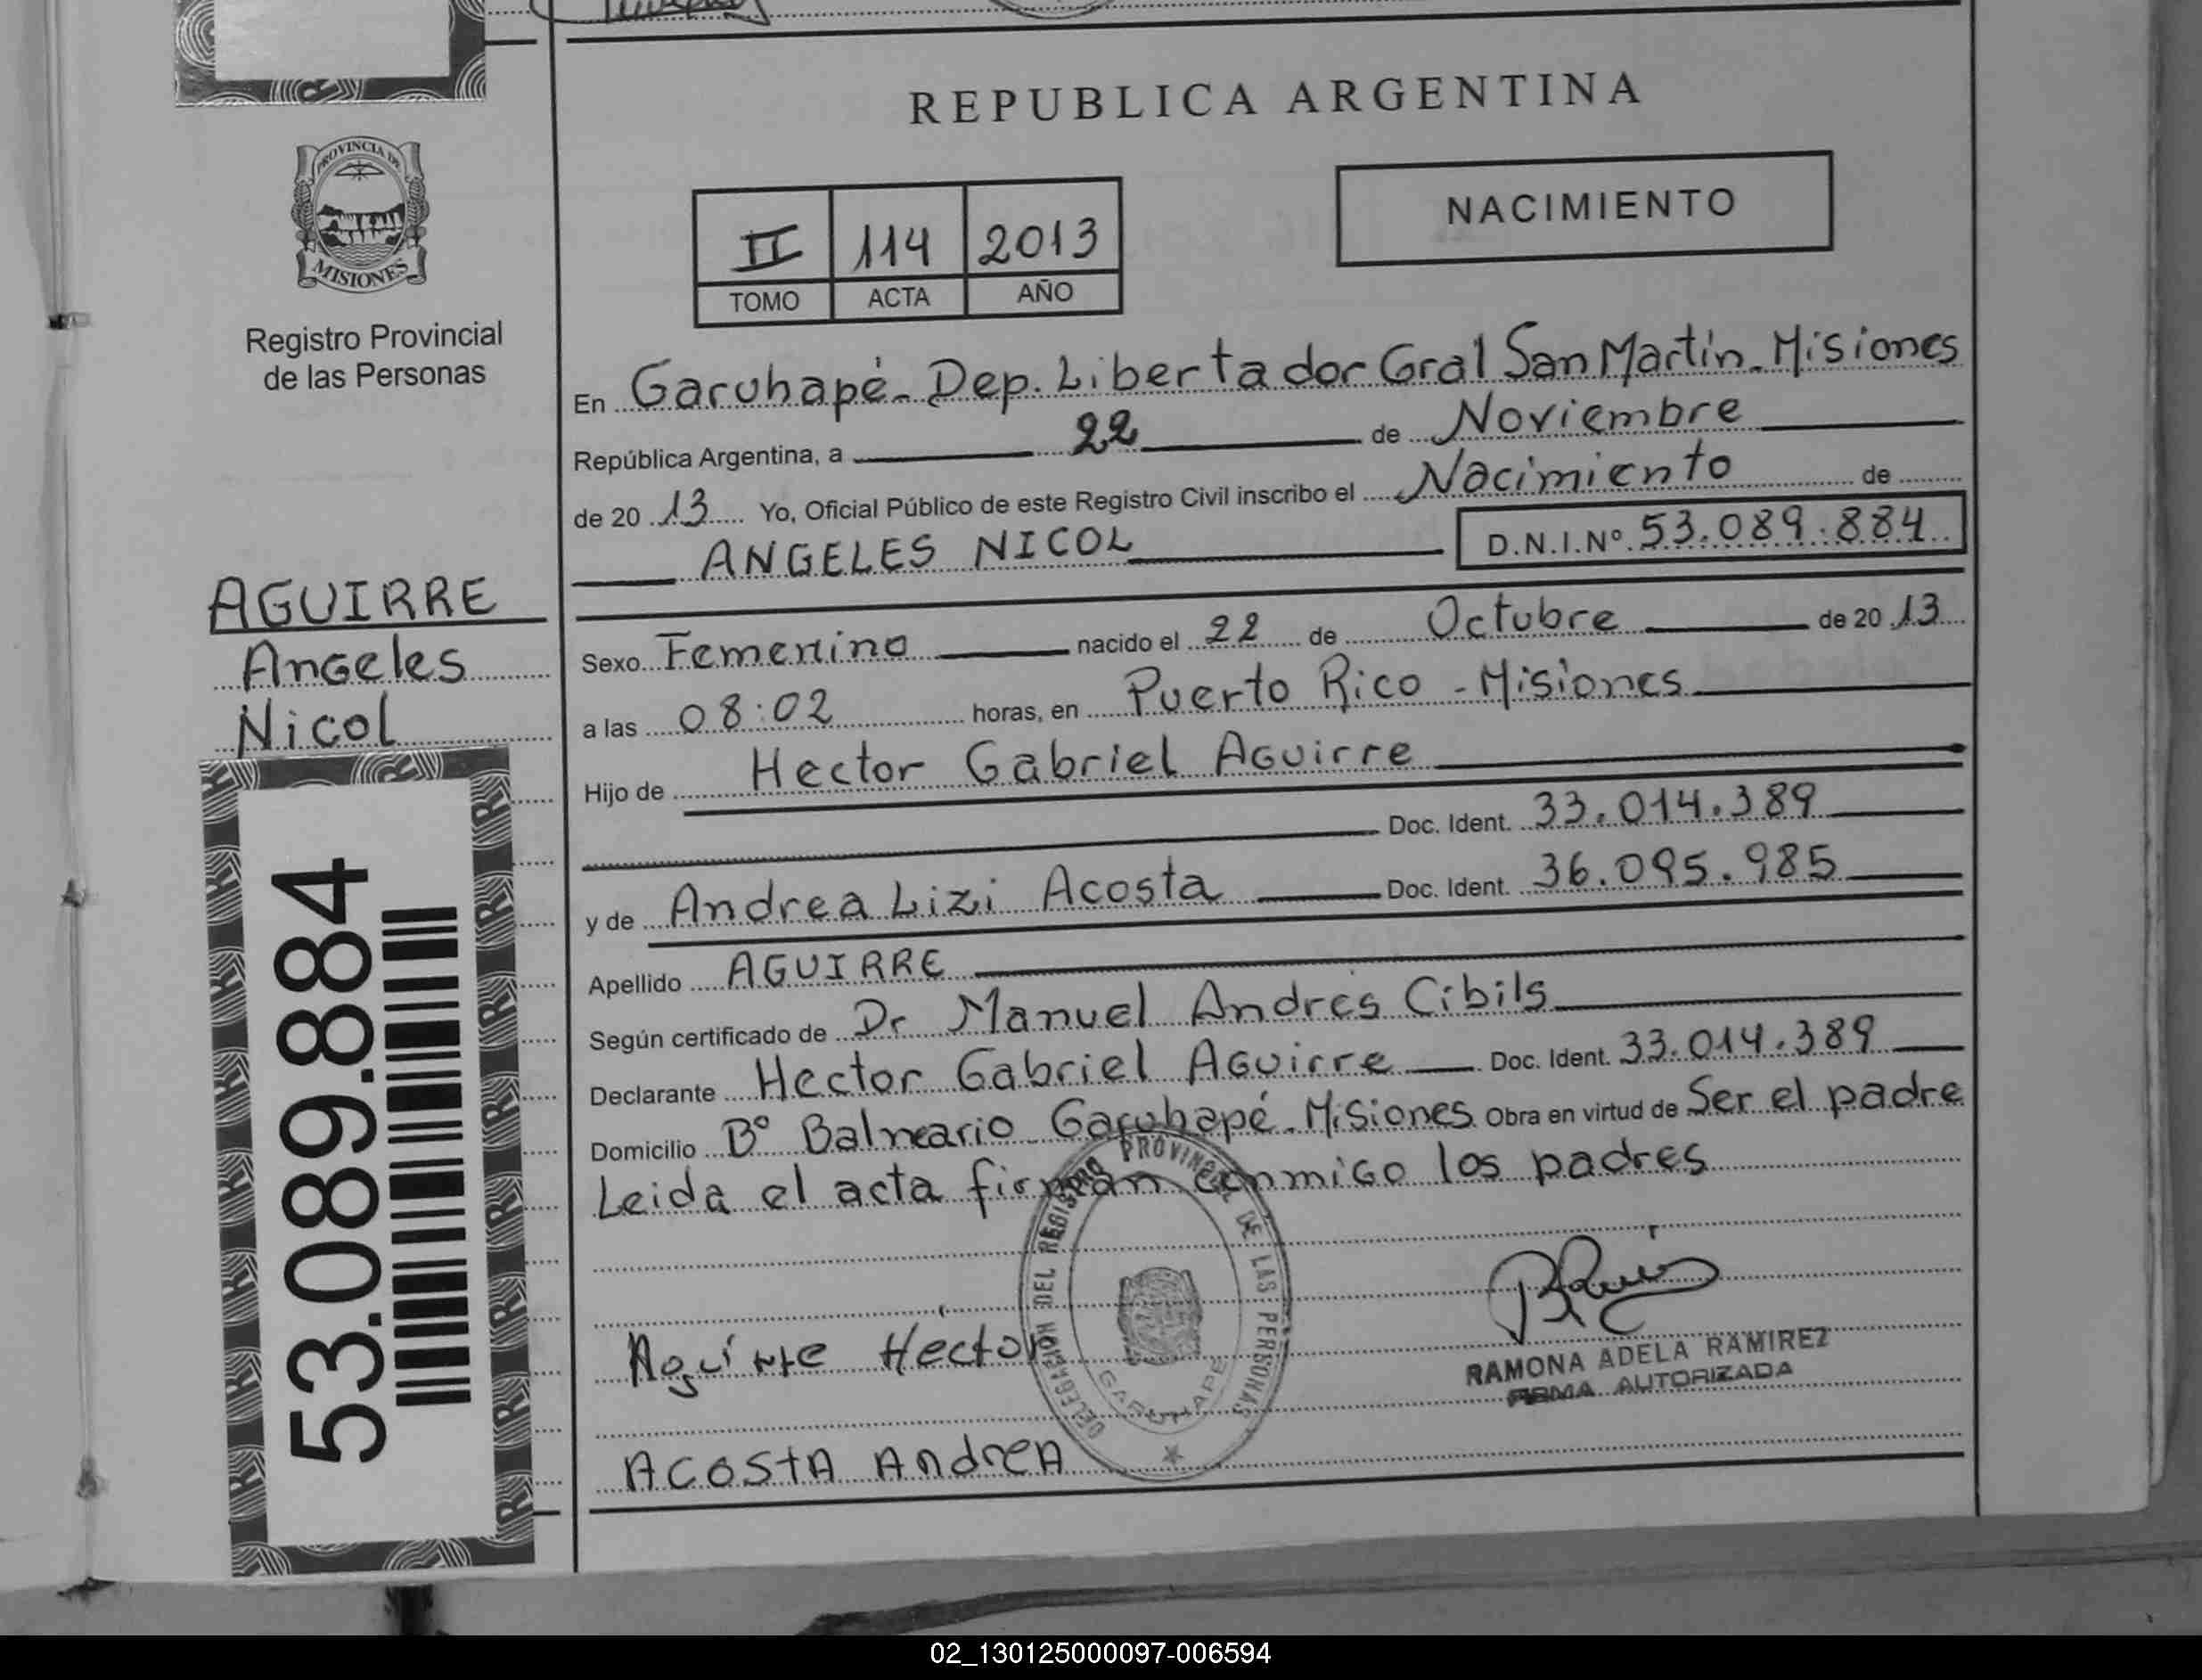 REPUBLICA ARGENTINA
PROVINCIA DE
MISIONES
Registro Provincial
de las Personas
NACIMIENTO
II 114 2013
TOMO ACTA AÑO
En Garuhapé - Dep. Libertador Gral San Martín - Misiones
República Argentina, a 22 de Noviembre
de 20 13 Yo, Oficial Público de este Registro Civil inscribo el Nacimiento de
ANGELES NICOL D.N.I.Nº 53.089.884
AGUIRRE
Angeles
Nicol
Sexo Femenino nacido el 22 de Octubre de 20 13
a las 08:02 horas, en Puerto Rico - Misiones
Hijo de Hector Gabriel Aguirre
Doc. Ident. 33.014.389
y de Andrea Lizi Acosta Doc. Ident. 36.095.985
Apellido AGUIRRE
Según certificado de Dr Manuel Andrés Cibils
Declarante Hector Gabriel Aguirre Doc. Ident. 33.014.389
Domicilio Bº Balneario Garuhapé - Misiones Obra en virtud de Ser el padre
Leida el acta firman conmigo los padres
53.089.884
DELEGACION DEL REGISTRO PROVINCIAL DE LAS PERSONAS
GARUHAPE
Aguirre Héctor
RAMONA ADELA RAMIREZ
FIRMA AUTORIZADA
ACOSTA AndreA
02_130125000097-006594